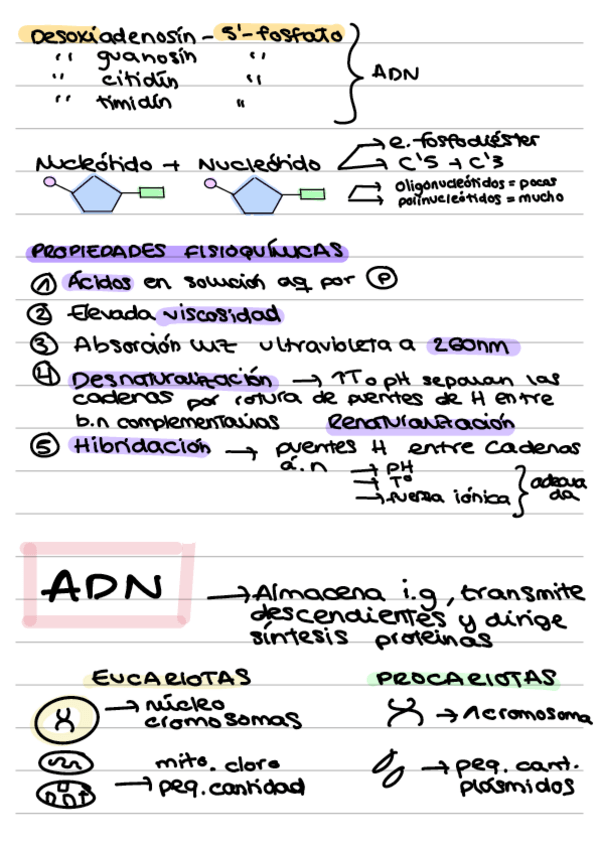 Desoxiadenosín - 5'-fosfato
" guanosín "
" citidín " ADN
" timidín "
Nucleótido + Nucleótido → e. fosfodiéster
→ C'5 + C'3
Oligonucleótidos = pocas
polinucleótidos = mucho
PROPIEDADES FISIOQUÍMICAS
1 Ácidos en solución aq por P
2 Elevada viscosidad
3 Absorción luz ultravioleta a 260nm
4 Desnaturalización → ↑Tº pH separan las
cadenas por rotura de puentes de H entre
b.n complementarias Renaturalización
5 Hibridación → puentes H entre cadenas
á.n → pH
→ Tº adecua
→ fuerza iónica da
ADN → Almacena i.g, transmite
descendientes y dirige
síntesis proteinas
EUCARIOTAS PROCARIOTAS
→ núcleo
cromosomas → 1 cromosoma
mito. cloro → peq. cant.
→ peq. cantidad plásmidos